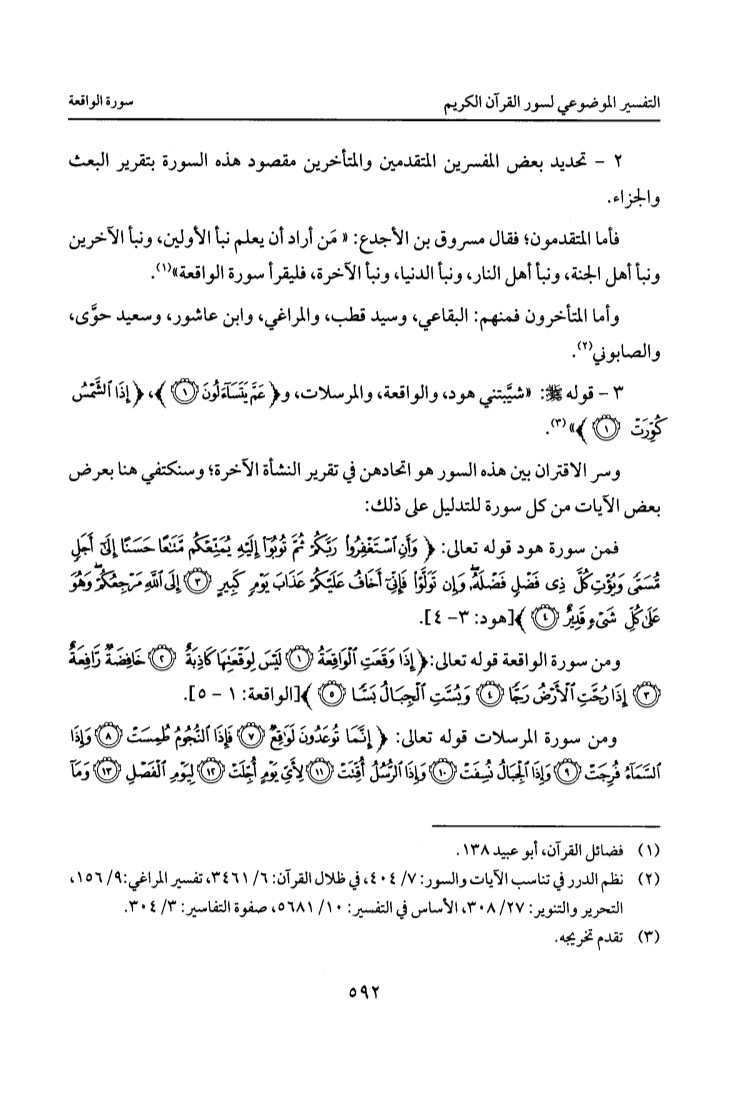 التفسير الموضوعي لسور القرآن الكريم
سورة الواقعة
٢ - تحديد بعض المفسرين المتقدمين والمتأخرين مقصود هذه السورة بتقرير البعث
والجزاء.
فأما المتقدمون؛ فقال مسروق بن الأجدع: «مَن أراد أن يعلم نبأ الأولين، ونبأ الآخرين
ونبأ أهل الجنة، ونبأ أهل النار، ونبأ الدنيا، ونبأ الآخرة، فليقرأ سورة الواقعة»(١).
وأما المتأخرون فمنهم: البقاعي، وسيد قطب، والمراغي، وابن عاشور، وسعيد حوَّى،
والصابوني(٢).
٣ - قوله ﷺ: «شيَّبتني هود، والواقعة، والمرسلات، و﴿عَمَّ يَتَسَآءَلُونَ ١﴾، ﴿إِذَا ٱلشَّمۡسُ
كُوِّرَتۡ ١﴾»(٣).
وسر الاقتران بين هذه السور هو اتحادهن في تقرير النشأة الآخرة؛ وسنكتفي هنا بعرض
بعض الآيات من كل سورة للتدليل على ذلك:
فمن سورة هود قوله تعالى: ﴿وَأَنِ ٱسۡتَغۡفِرُواْ رَبَّكُمۡ ثُمَّ تُوبُوٓاْ إِلَيۡهِ يُمَتِّعۡكُم مَّتَٰعًا حَسَنًا إِلَىٰٓ أَجَلٖ
مُّسَمّٗى وَيُؤۡتِ كُلَّ ذِي فَضۡلٖ فَضۡلَهُۥۖ وَإِن تَوَلَّوۡاْ فَإِنِّيٓ أَخَافُ عَلَيۡكُمۡ عَذَابَ يَوۡمٖ كَبِيرٍ ٣ إِلَى ٱللَّهِ مَرۡجِعُكُمۡۖ وَهُوَ
عَلَىٰ كُلِّ شَيۡءٖ قَدِيرٌ ٤﴾[هود: ٣- ٤].
ومن سورة الواقعة قوله تعالى:﴿إِذَا وَقَعَتِ ٱلۡوَاقِعَةُ ١ لَيۡسَ لِوَقۡعَتِهَا كَاذِبَةٌ ٢ خَافِضَةٞ رَّافِعَةٌ
٣ إِذَا رُجَّتِ ٱلۡأَرۡضُ رَجّٗا ٤ وَبُسَّتِ ٱلۡجِبَالُ بَسّٗا ٥﴾[الواقعة: ١ - ٥].
ومن سورة المرسلات قوله تعالى: ﴿إِنَّمَا تُوعَدُونَ لَوَٰقِعٞ ٧ فَإِذَا ٱلنُّجُومُ طُمِسَتۡ ٨ وَإِذَا
ٱلسَّمَآءُ فُرِجَتۡ ٩ وَإِذَا ٱلۡجِبَالُ نُسِفَتۡ ١٠ وَإِذَا ٱلرُّسُلُ أُقِّتَتۡ ١١ لِأَيِّ يَوۡمٍ أُجِّلَتۡ ١٢ لِيَوۡمِ ٱلۡفَصۡلِ ١٣ وَمَآ
(١) فضائل القرآن، أبو عبيد ١٣٨.
(٢) نظم الدرر في تناسب الآيات والسور: ٧/ ٤٠٤، في ظلال القرآن: ٦/ ٣٤٦١، تفسير المراغي:٩/ ١٥٦،
التحرير والتنوير: ٢٧/ ٣٠٨، الأساس في التفسير: ١٠/ ٥٦٨١، صفوة التفاسير: ٣/ ٣٠٤.
(٣) تقدم تخريجه.
٥٩٢